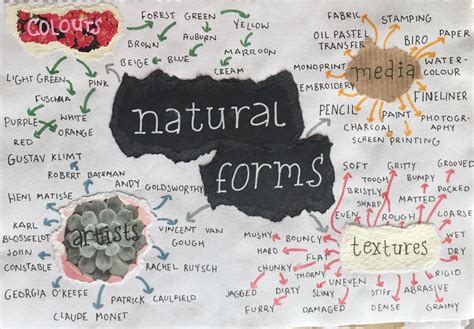 COLOURS
FOREST GREEN
YELLOW
BROWN
AUBURN
MARROON
BEIGE
BLUE
CREAM
LIGHT GREEN
PINK
FUSCHIA
PURPLE
WHITE
ORANGE
RED
natural
forms
FABRIC
STAMPING
OIL PASTEL
TRANSFER
BIRO
PAPER
MONOPRINT
media
WATER-
COLOUR
EMBROIDERY
FINELINER
PENCIL
PAINT
PHOTOGRA-
PHY
CHARCOAL
SCREEN PRINTING
GUSTAV KLIMT
ROBERT BATEMAN
HENI MATISSE
ANDY GOLDSWORTHY
KARL
BLOSSFELDT
artists
VINCENT VAN
GOUGH
JOHN
CONSTABLE
RACHEL RUYSCH
GEORGIA O'KEEFE
PATRICK CAULFIELD
CLAUDE MONET
SOFT
GRITTY
GROOVED
TOUGH
BUMPY
WET
BRISTLY
POCKED
SHARP
MATTED
EVEN
ROUGH
COARSE
MUSHY
BOUNCY
textures
HARD
FLUFFY
CHUNKY
THORNY
RIGID
JAGGED
UNEVEN
DIRTY
SLIMY
DENSE
ABRASIVE
FURRY
DAMAGED
GRAINY